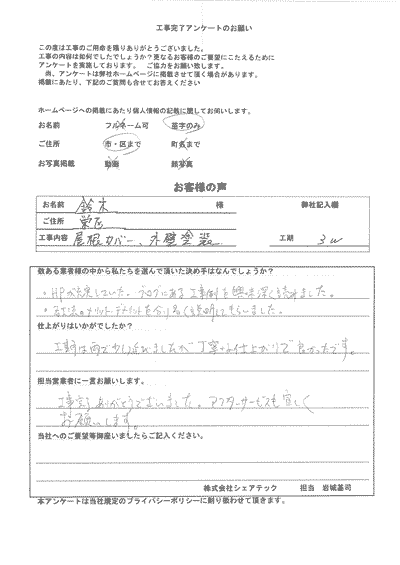 工事完了アンケートのお願い
この度は工事のご用命を賜りありがとうございました。
工事の内容は如何でしたでしょうか？更なるお客様のご要望にこたえるために
アンケートを実施しております。 ご協力をお願い致します。
尚、アンケートは弊社ホームページに掲載させて頂く場合があります。
掲載にあたり、下記のご質問も合せてお答えください
ホームページへの掲載にあたり個人情報の記載に関してお伺いします。
お名前 フルネーム可 苗字のみ
ご住所 市・区まで 町名まで
お写真掲載 動画 顔写真
お客様の声
お名前 鈴木 様 御社記入欄
ご住所 栄区
工事内容 屋根カバー、外壁塗装 工期 3w
数ある業者様の中から私たちを選んで頂いた決め手はなんでしょうか？
・HPが充実していた。ブログにある工事例を興味深く読みました。
・各工法のメリット・デメリットを分り易く説明してもらいました。
仕上がりはいかがでしたか？
工期は雨で少し延びましたが丁寧な仕上がりで良かったです。
担当営業者に一言お願いします。
工事完了ありがとうございました。アフターサービスも宜しく
お願いします。
当社へのご要望等御座いましたらご記入ください。
株式会社シェアテック 担当 岩城基司
本アンケートは当社規定のプライバシーポリシーに則り扱わせて頂きます。